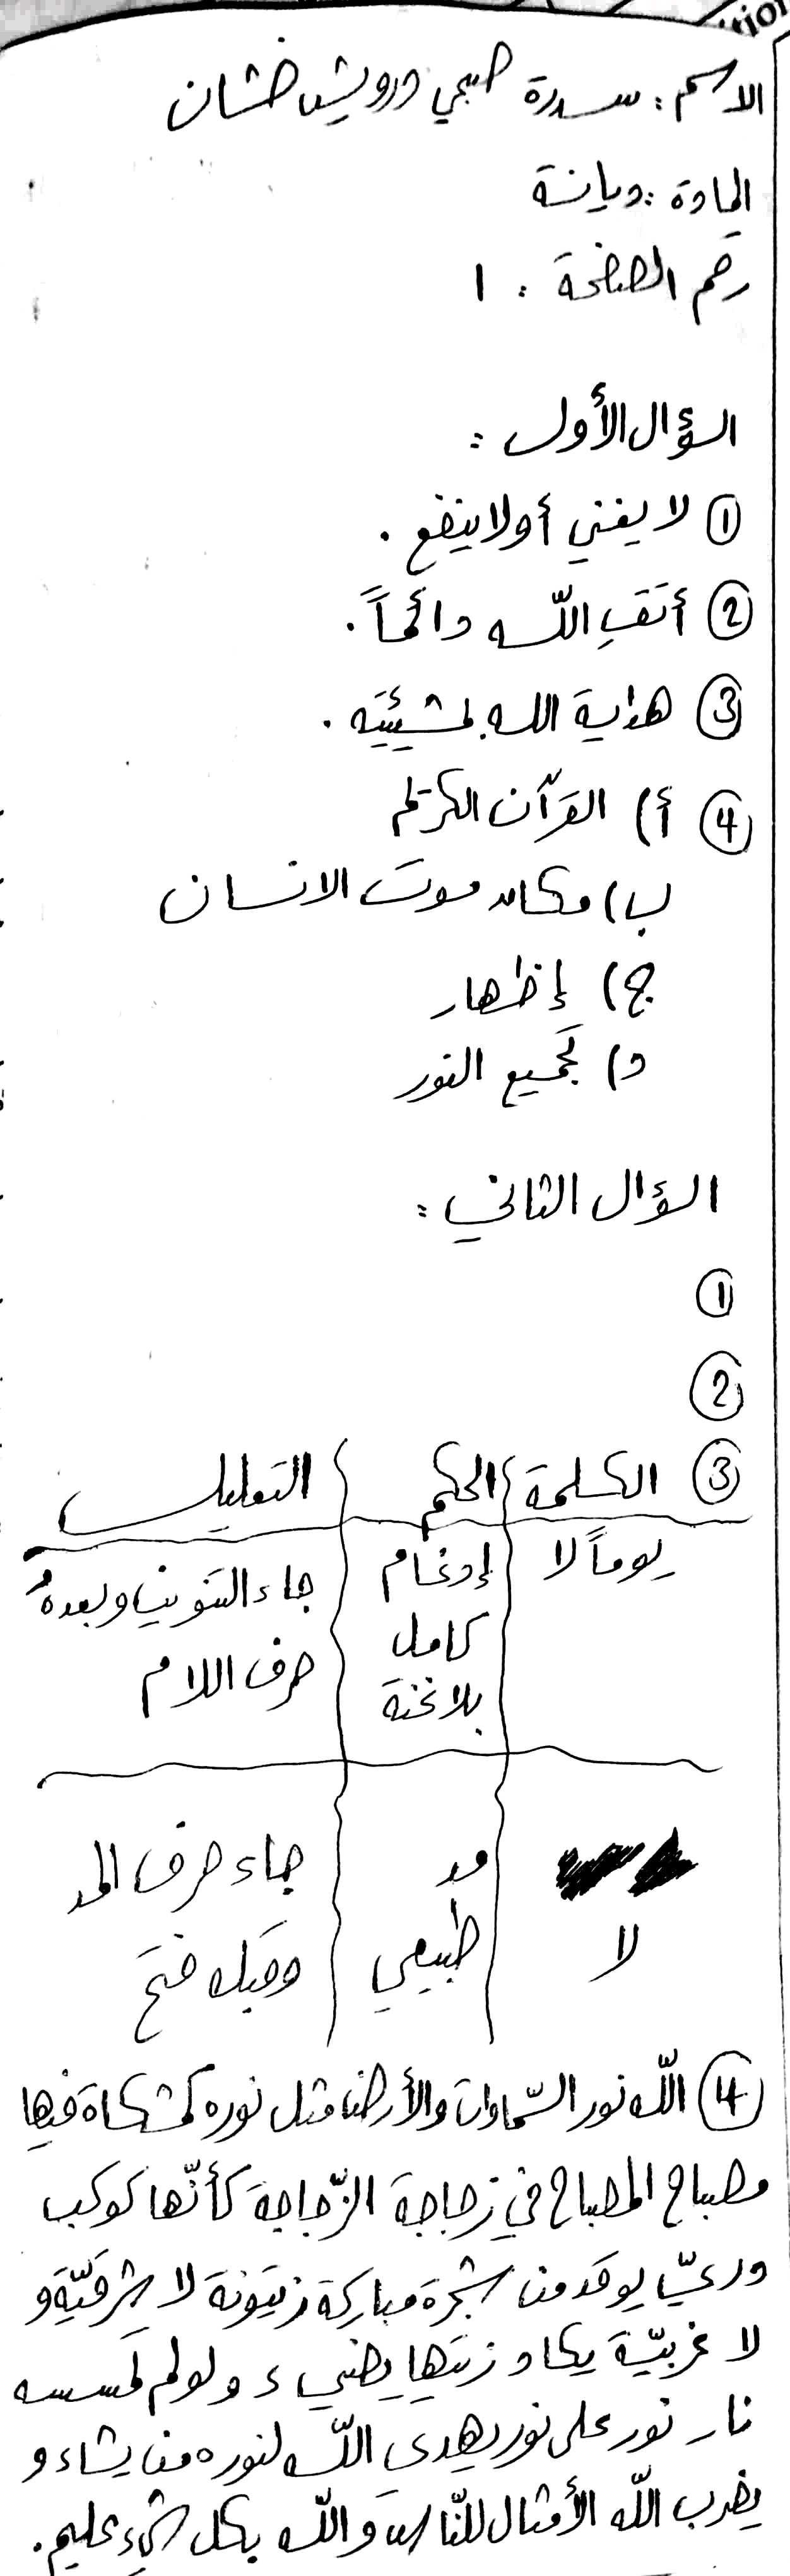 tion
الاسم : سدرة صبحي درويش خشان
المادة : ديانة
رقم الصفحة : ١
السؤال الأول :
① لا يغني أو لا ينفع .
② أتقِ اللّه دائماً .
③ هداية الله بمشيئته .
④ أ) القرآن الكريم
ب) مكان موت الانسان
ج) إظهار
د) تجميع النور
السؤال الثاني :
①
②
③ الكلمة الحكم التعليل
يوماً لا إدغام جاء التنوين وبعدهُ
كامل حرف اللام
بلا غنة
مد جاء حرف المد
لا طبيعي وقبله فتح
④ اللّه نور السّماوات والأرض مثل نوره كمشكاة فيها
مصباح المصباح في زجاجة الزّجاجة كأنّها كوكب
درىّ يوقد من شجرة مباركة زيتونة لا شرقيّة و
لا غربيّة يكاد زيتها يضيء ولو لم تمسسه
نار نور على نور يهدي اللّه لنوره من يشاء و
يضرب اللّه الأمثال للنّاس واللّه بكل شيء عليم .